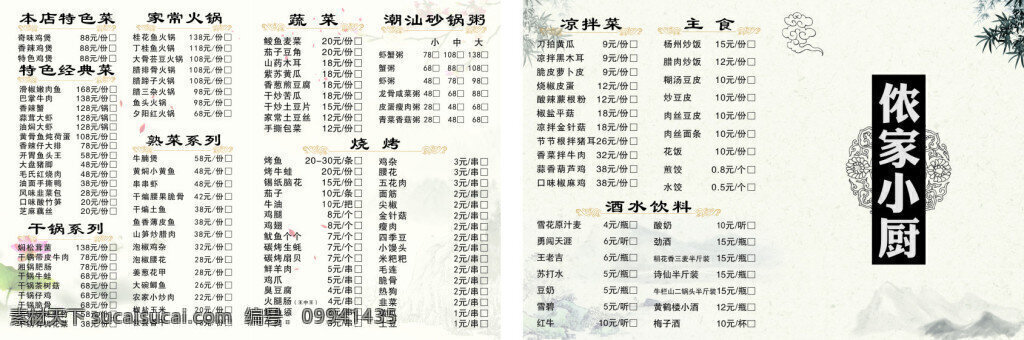 本店特色菜
奇味鸡煲 88元/份
香辣鸡煲 88元/份
特色鸡煲 88元/份
特色经典菜
滑椒嫩肉鱼 168元/份
巴掌牛肉 138元/份
香辣蟹 128元/锅
蒜茸大虾 128元/锅
油焖大虾 128元/锅
黄骨鱼炖荷蛋 108元/份
香辣仔大排 78元/份
开胃鱼头王 58元/份
大盘猪脚 48元/份
毛氏红烧肉 48元/份
油面手撕鸭 38元/份
风味韭菜包 28元/份
口味酸竹笋 20元/份
芝麻藕丝 20元/份
干锅系列
干锅茶树菇
干锅仔鸡
家常火锅
桂花鱼火锅 138元/份
丁桂鱼火锅 118元/份
大骨芸豆火锅 118元/份
腊排骨火锅 118元/份
腊蹄子火锅 118元/份
腊三杂火锅 98元/份
鱼头火锅 98元/份
夕阳红火锅 68元/份
熟菜系列
牛腩煲 58元/份
黄焖小黄鱼 48元/份
串串虾 48元/份
干煸腰果脆骨 42元/份
干煸土鱼 38元/份
鱼香薄皮鱼 38元/份
山笋炒腊肉 38元/份
泡椒鸡杂 32元/份
泡椒腰花 28元/份
姜葱花甲 28元/份
大碗鲷鱼 26元/份
农家小炒肉 22元/份
椒盐玉米 20元/份
蔬菜
鲮鱼麦菜 20元/份
茄子豆角 20元/份
山药木耳 18元/份
紫苏黄瓜 18元/份
香葱煎豆腐 18元/份
干炒苦瓜 18元/份
干炒土豆片 15元/份
家常土豆丝 12元/份
手撕包菜 12元/份
潮汕砂锅粥
小 中 大
虾蟹粥 78 108 138
蟹粥 68 88 108
虾粥 48 78 98
龙骨咸菜粥 28 48 68
皮蛋瘦肉粥 28 48 68
青菜香菇粥 28 48 68
烧烤
烤鱼 20-30元/条
烤牛蛙 20元/份
锡纸脑花 15元/份
茄子 10元/条
牛油 10元/把
鸡腿 8元/个
鸡翅 8元/个
鱿鱼个个 7元/个
碳烤生蚝 7元/个
碳烤扇贝 7元/个
鲜羊肉 5元/串
鸡爪 5元/串
臭豆腐 4元/串
火腿肠(王中王) 4元/串
鸡杂 3元/串
腰花 3元/串
五花肉 3元/串
面筋 2元/串
尖椒 2元/串
金针菇 2元/串
瘦肉 2元/串
四季豆 2元/串
小馒头 2元/串
米粑粑 2元/串
毛连 2元/串
脆骨 2元/串
热狗 2元/串
韭菜 2元/串
素材天下 sucaisucai.com 编号：09941435
凉拌菜
刀拍黄瓜 9元/份
凉拌黑木耳 9元/份
脆皮萝卜皮 9元/份
烧椒皮蛋 12元/份
酸辣蕨根粉 12元/份
椒盐平菇 18元/份
凉拌金针菇 18元/份
节节根拌猪耳 26元/份
香菜拌牛肉 32元/份
蒜香葫芦鸡 38元/份
口味椒麻鸡 38元/份
主食
杨州炒饭 15元/份
腊肉炒饭 12元/份
糊汤豆皮 10元/份
炒豆皮 10元/份
肉丝豆皮 10元/份
肉丝面条 10元/份
花饭 10元/份
煎饺 0.8元/个
水饺 0.5元/个
酒水饮料
雪花原汁麦 4元/瓶
勇闯天涯 6元/听
王老吉 6元/听
苏打水 5元/瓶
豆奶 5元/瓶
雪碧 5元/听
红牛 10元/听
酸奶 10元/听
劲酒 15元/瓶
稻花香三麦半斤装 15元/瓶
诗仙半斤装 15元/瓶
牛栏山二锅头半斤装 15元/瓶
黄鹤楼小酒 30元/瓶
梅子酒 10元/杯
侬家小厨